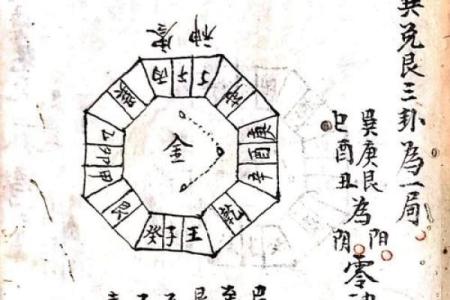 兌艮三卦為一局
巽庚艮為陽
巳酉丑 陰
零
丙午丁
坤
庚酉辛
乾
壬子癸
艮
甲卯乙
巽
金